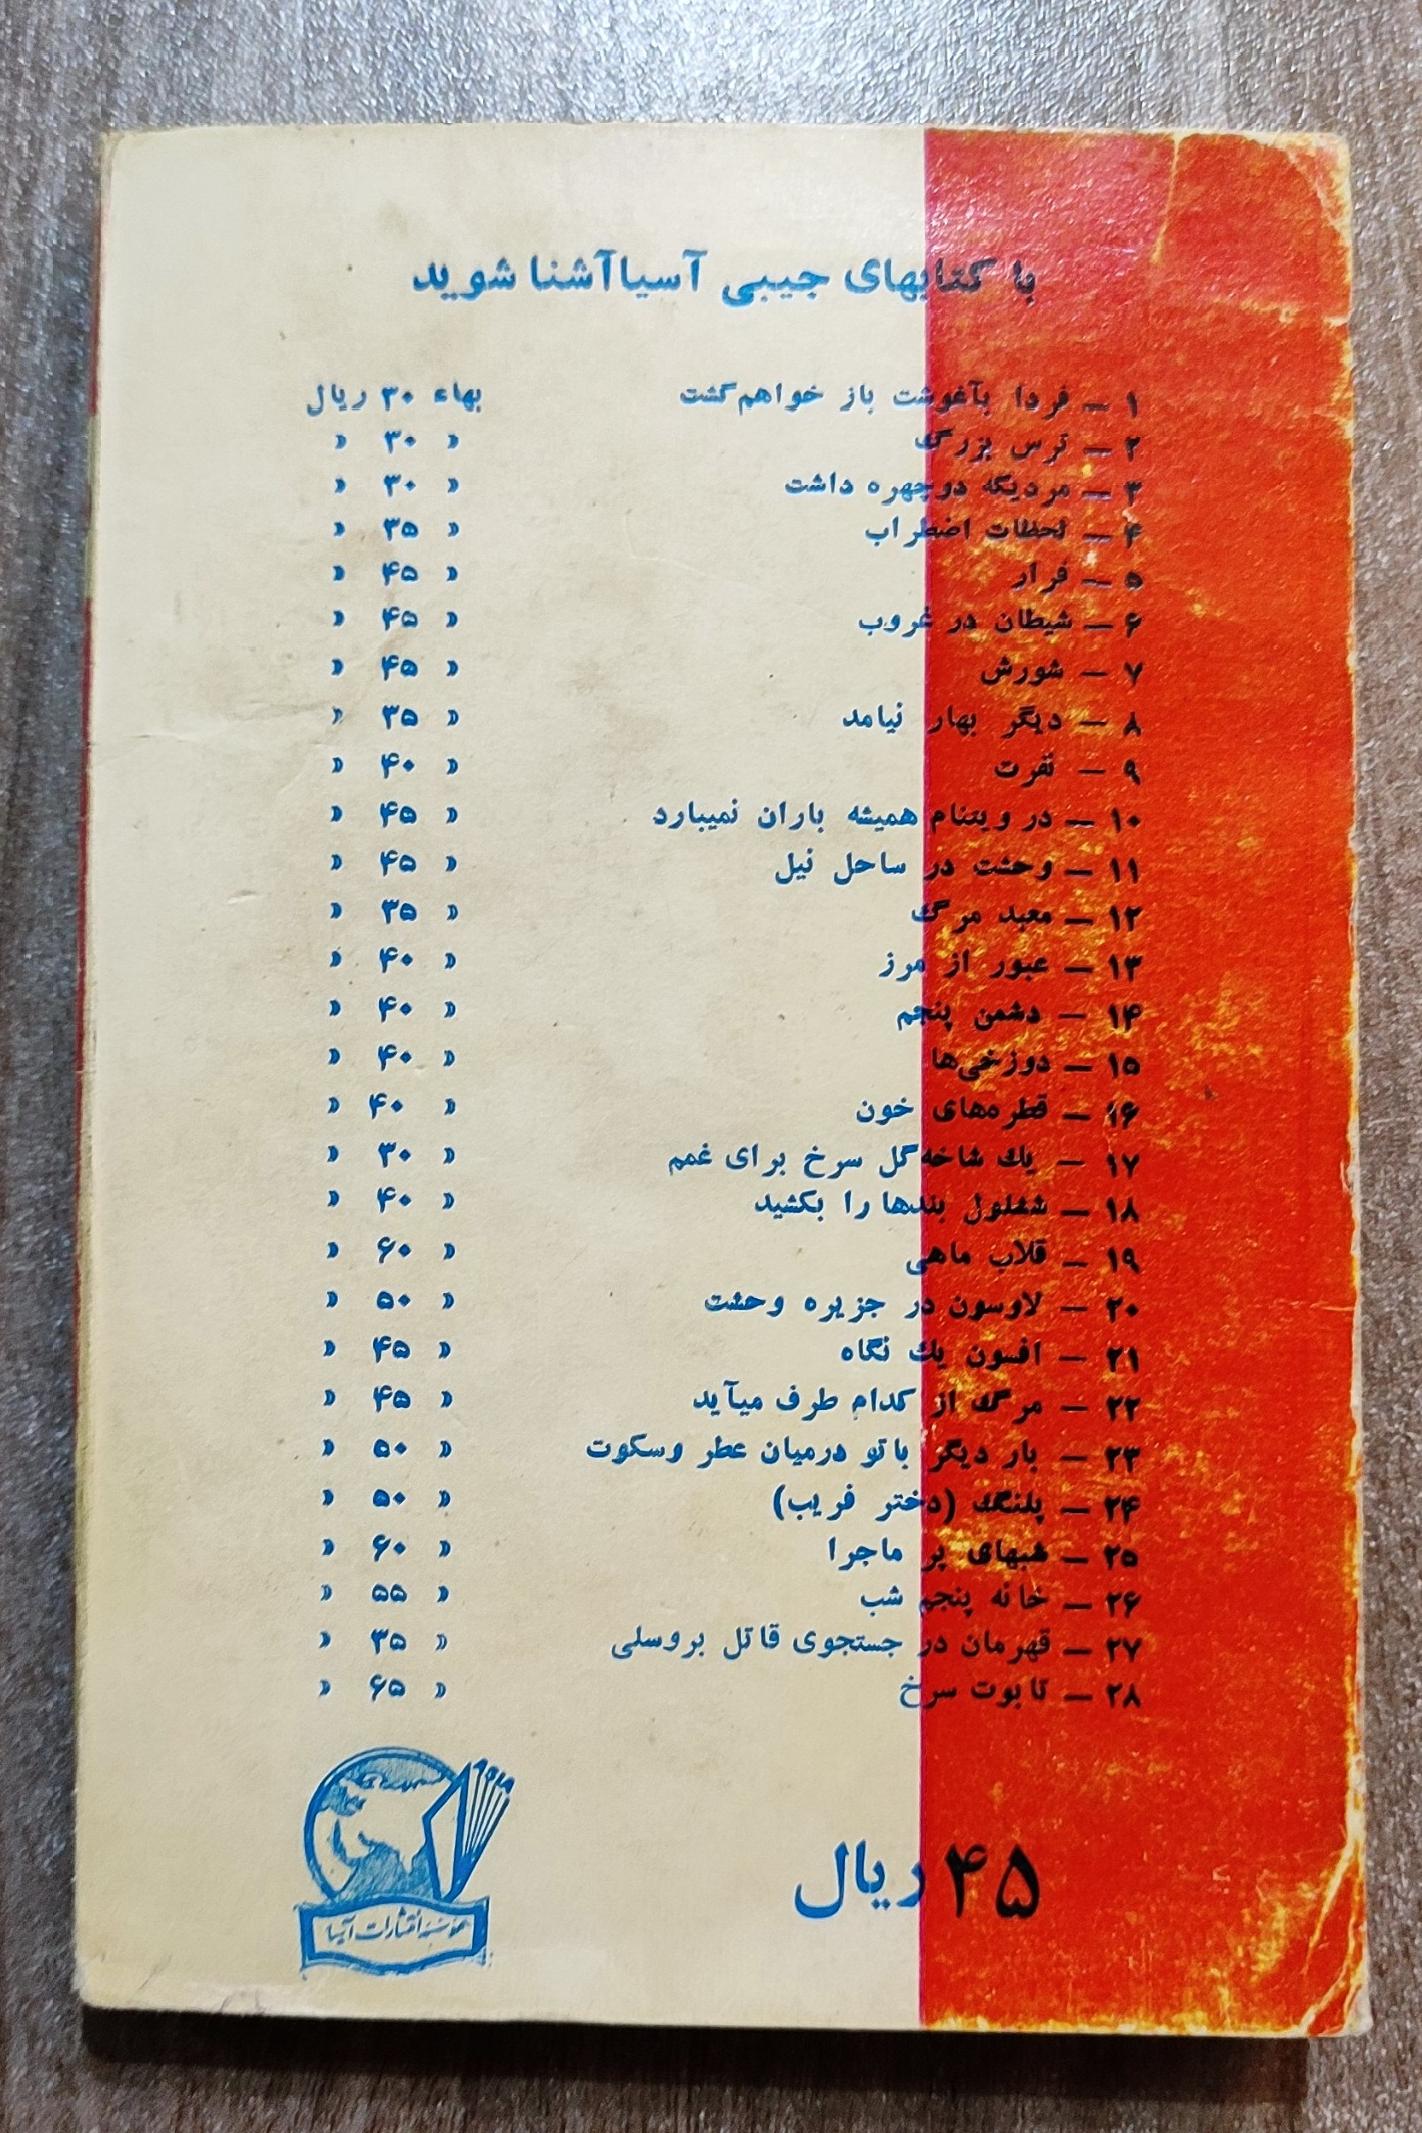 با کتابهای جیبی آسیا آشنا شوید
۱ – فردا بآغوشت باز خواهم گشت بهاء ۳۰ ریال
۲ – ترس بزرگ » ۳۰ »
۳ – مردیکه دوچهره داشت » ۳۰ »
۴ – لحظات اضطراب » ۳۵ »
۵ – فرار » ۴۵ »
۶ – شیطان در غروب » ۴۵ »
۷ – شورش » ۴۵ »
۸ – دیگر بهار نیامد » ۳۵ »
۹ – نفرت » ۴۰ »
۱۰ – در ویتنام همیشه باران نمیبارد » ۴۵ »
۱۱ – وحشت در ساحل نیل » ۴۵ »
۱۲ – معبد مرگ » ۳۵ »
۱۳ – عبور از مرز » ۴۰ »
۱۴ – دشمن پنجم » ۴۰ »
۱۵ – دوزخی‌ها » ۴۰ »
۱۶ – قطره‌های خون » ۴۰ »
۱۷ – یک شاخه گل سرخ برای غمم » ۳۰ »
۱۸ – ششلول بندها را بکشید » ۴۰ »
۱۹ – قلاب ماهی » ۶۰ »
۲۰ – لاوسون در جزیره وحشت » ۵۰ »
۲۱ – افسون یک نگاه » ۴۵ »
۲۲ – مرگ از کدام طرف میآید » ۴۵ »
۲۳ – بار دیگر باتو درمیان عطر وسکوت » ۵۰ »
۲۴ – پلنگ (دختر فریب) » ۵۰ »
۲۵ – شبهای پر ماجرا » ۶۰ »
۲۶ – خانه پنجم شب » ۵۵ »
۲۷ – قهرمان در جستجوی قاتل بروسلی » ۳۵ »
۲۸ – تابوت سرخ » ۶۵ »
۴۵ ریال
موسسه انتشارات آسیا